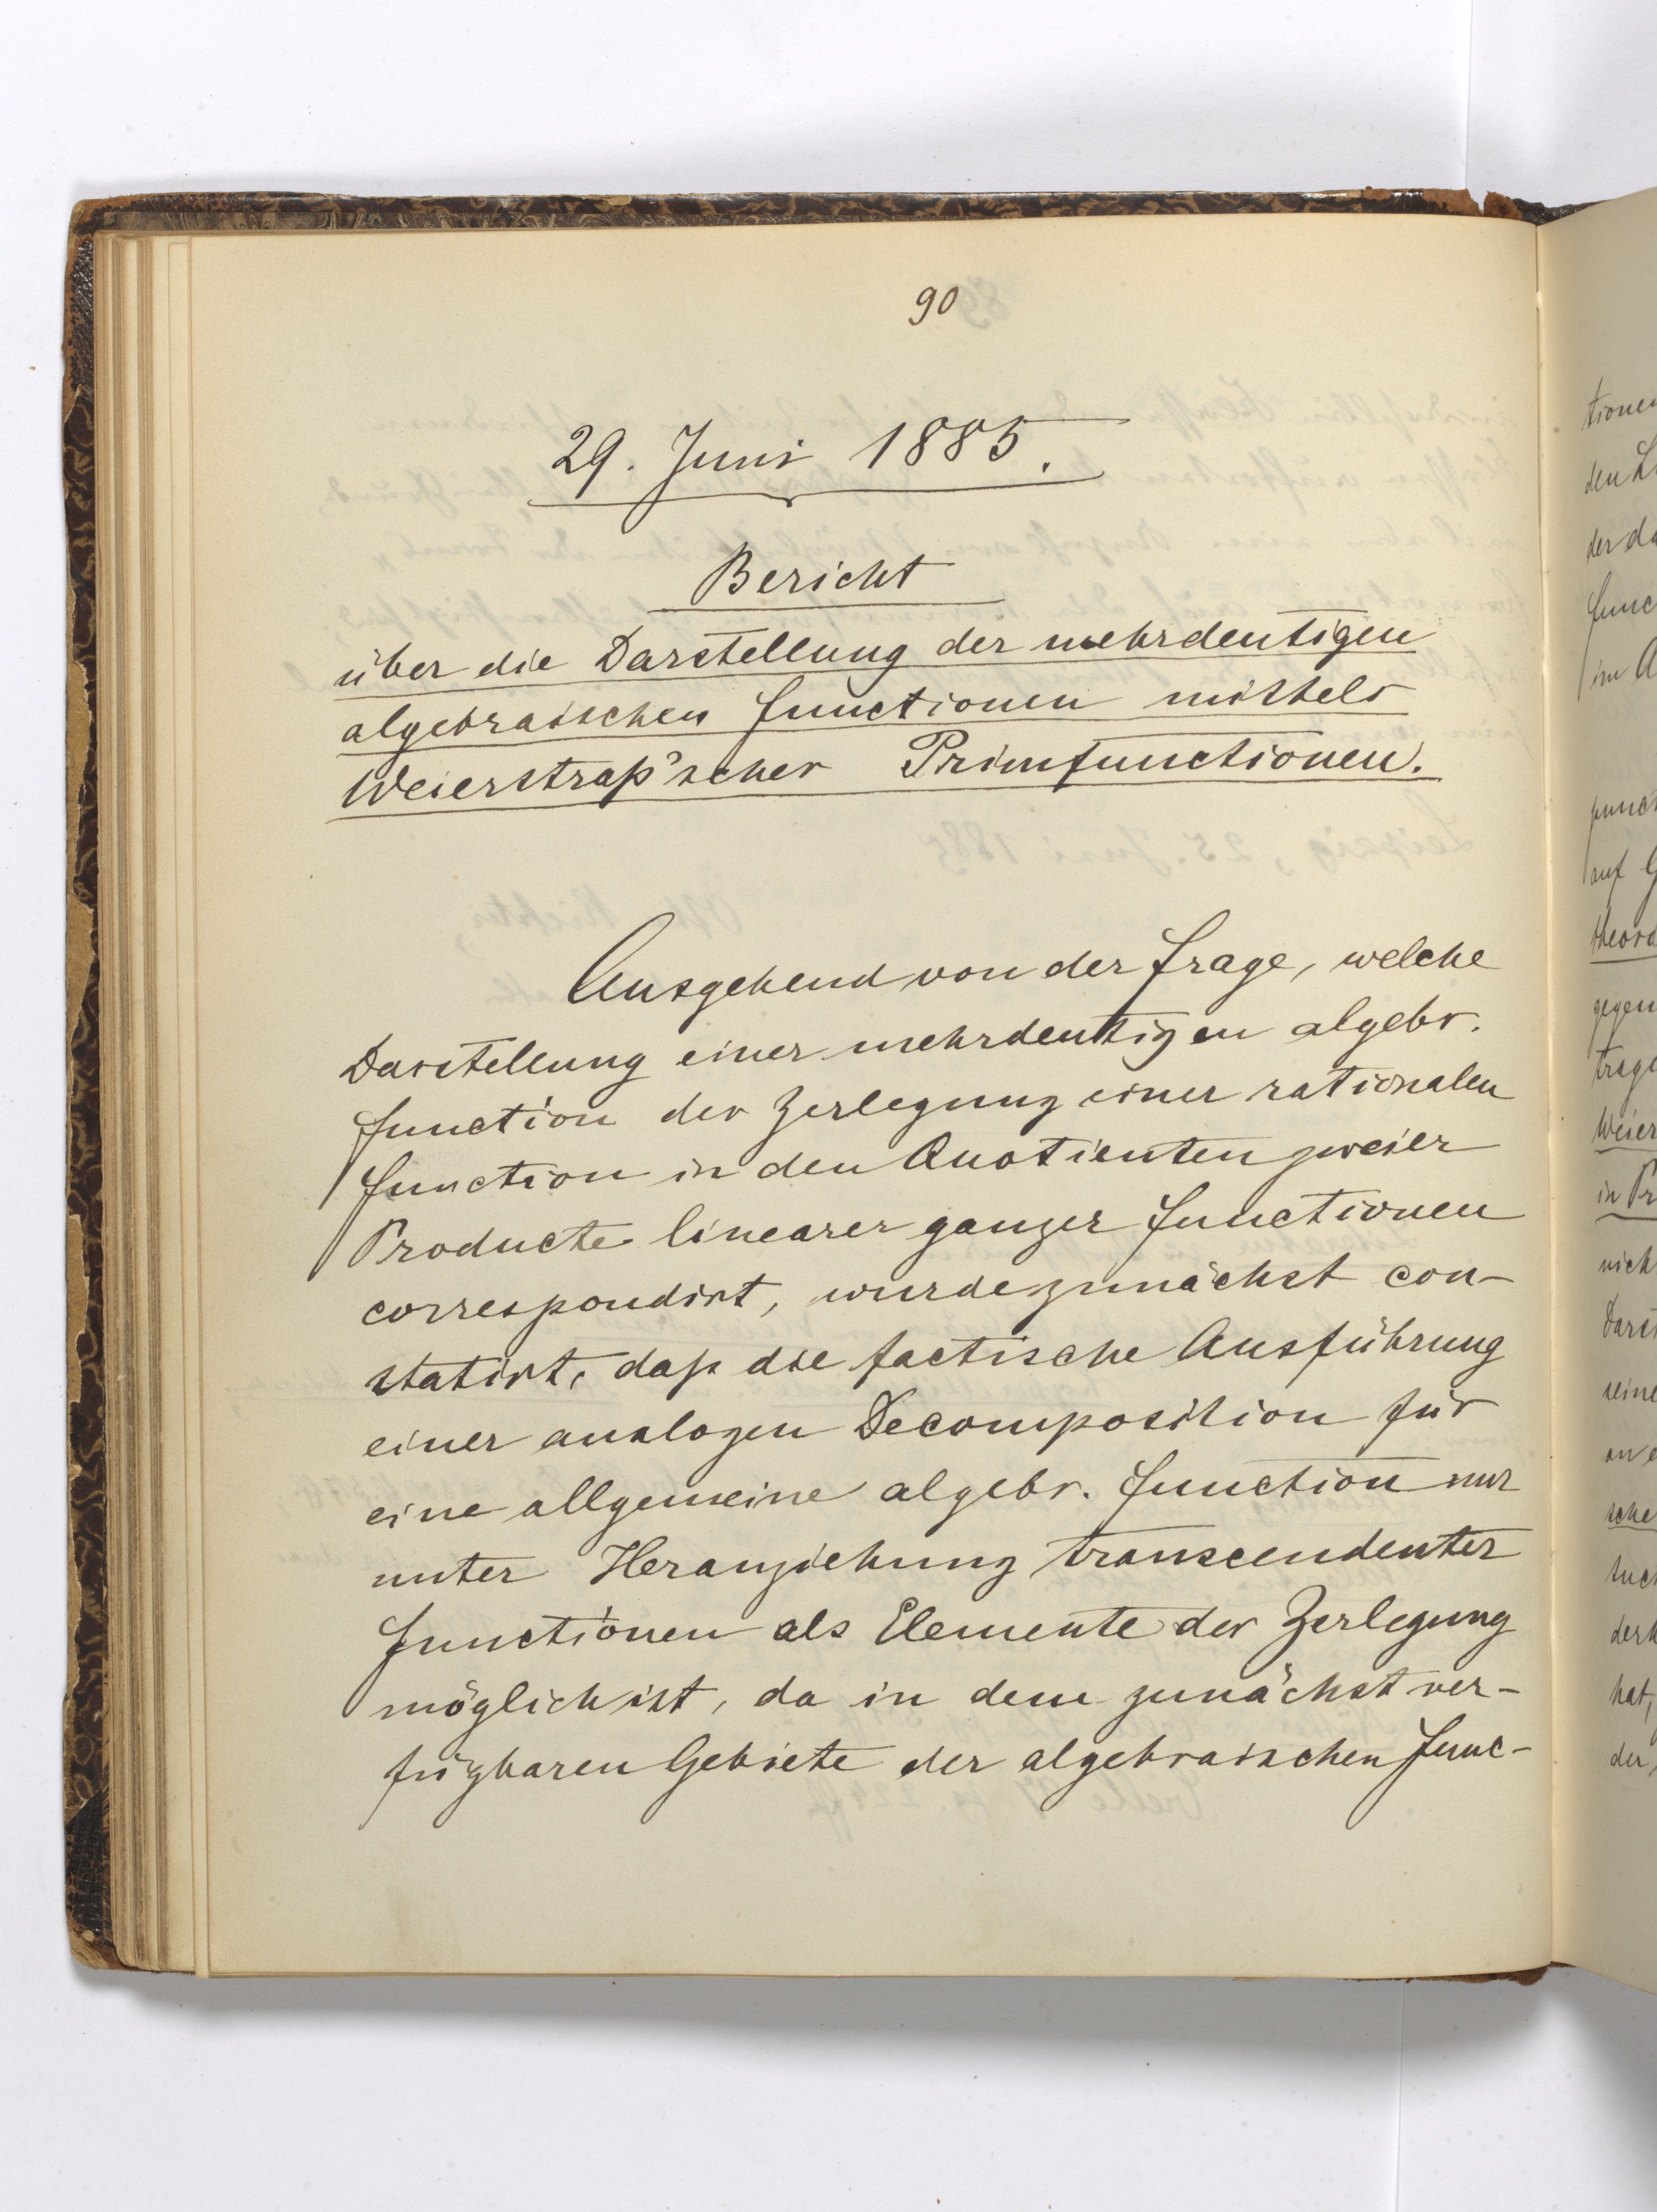 90
29. Juni 1885.
Bericht
über die Darstellung der mehrdeutigen
algebraischen Functionen mittels
Weierstraß'scher Primfunctionen.
Ausgehend von der Frage, welche
Darstellung einer mehrdeutigen algebr.
Function der Zerlegung einer rationalen
Function in den Quotienten zweier
Producte linearer ganzer Functionen
correspondirt, wurde zunächst con-
statirt, daß die factische Ausführung
einer analogen Decomposition für
eine allgemeine algebr. Function nur
unter Heranziehung transcendenter
Functionen als Elemente der Zerlegung
möglich ist, da in dem zunächst ver-
fügbaren Gebiete der algebraischen Func-